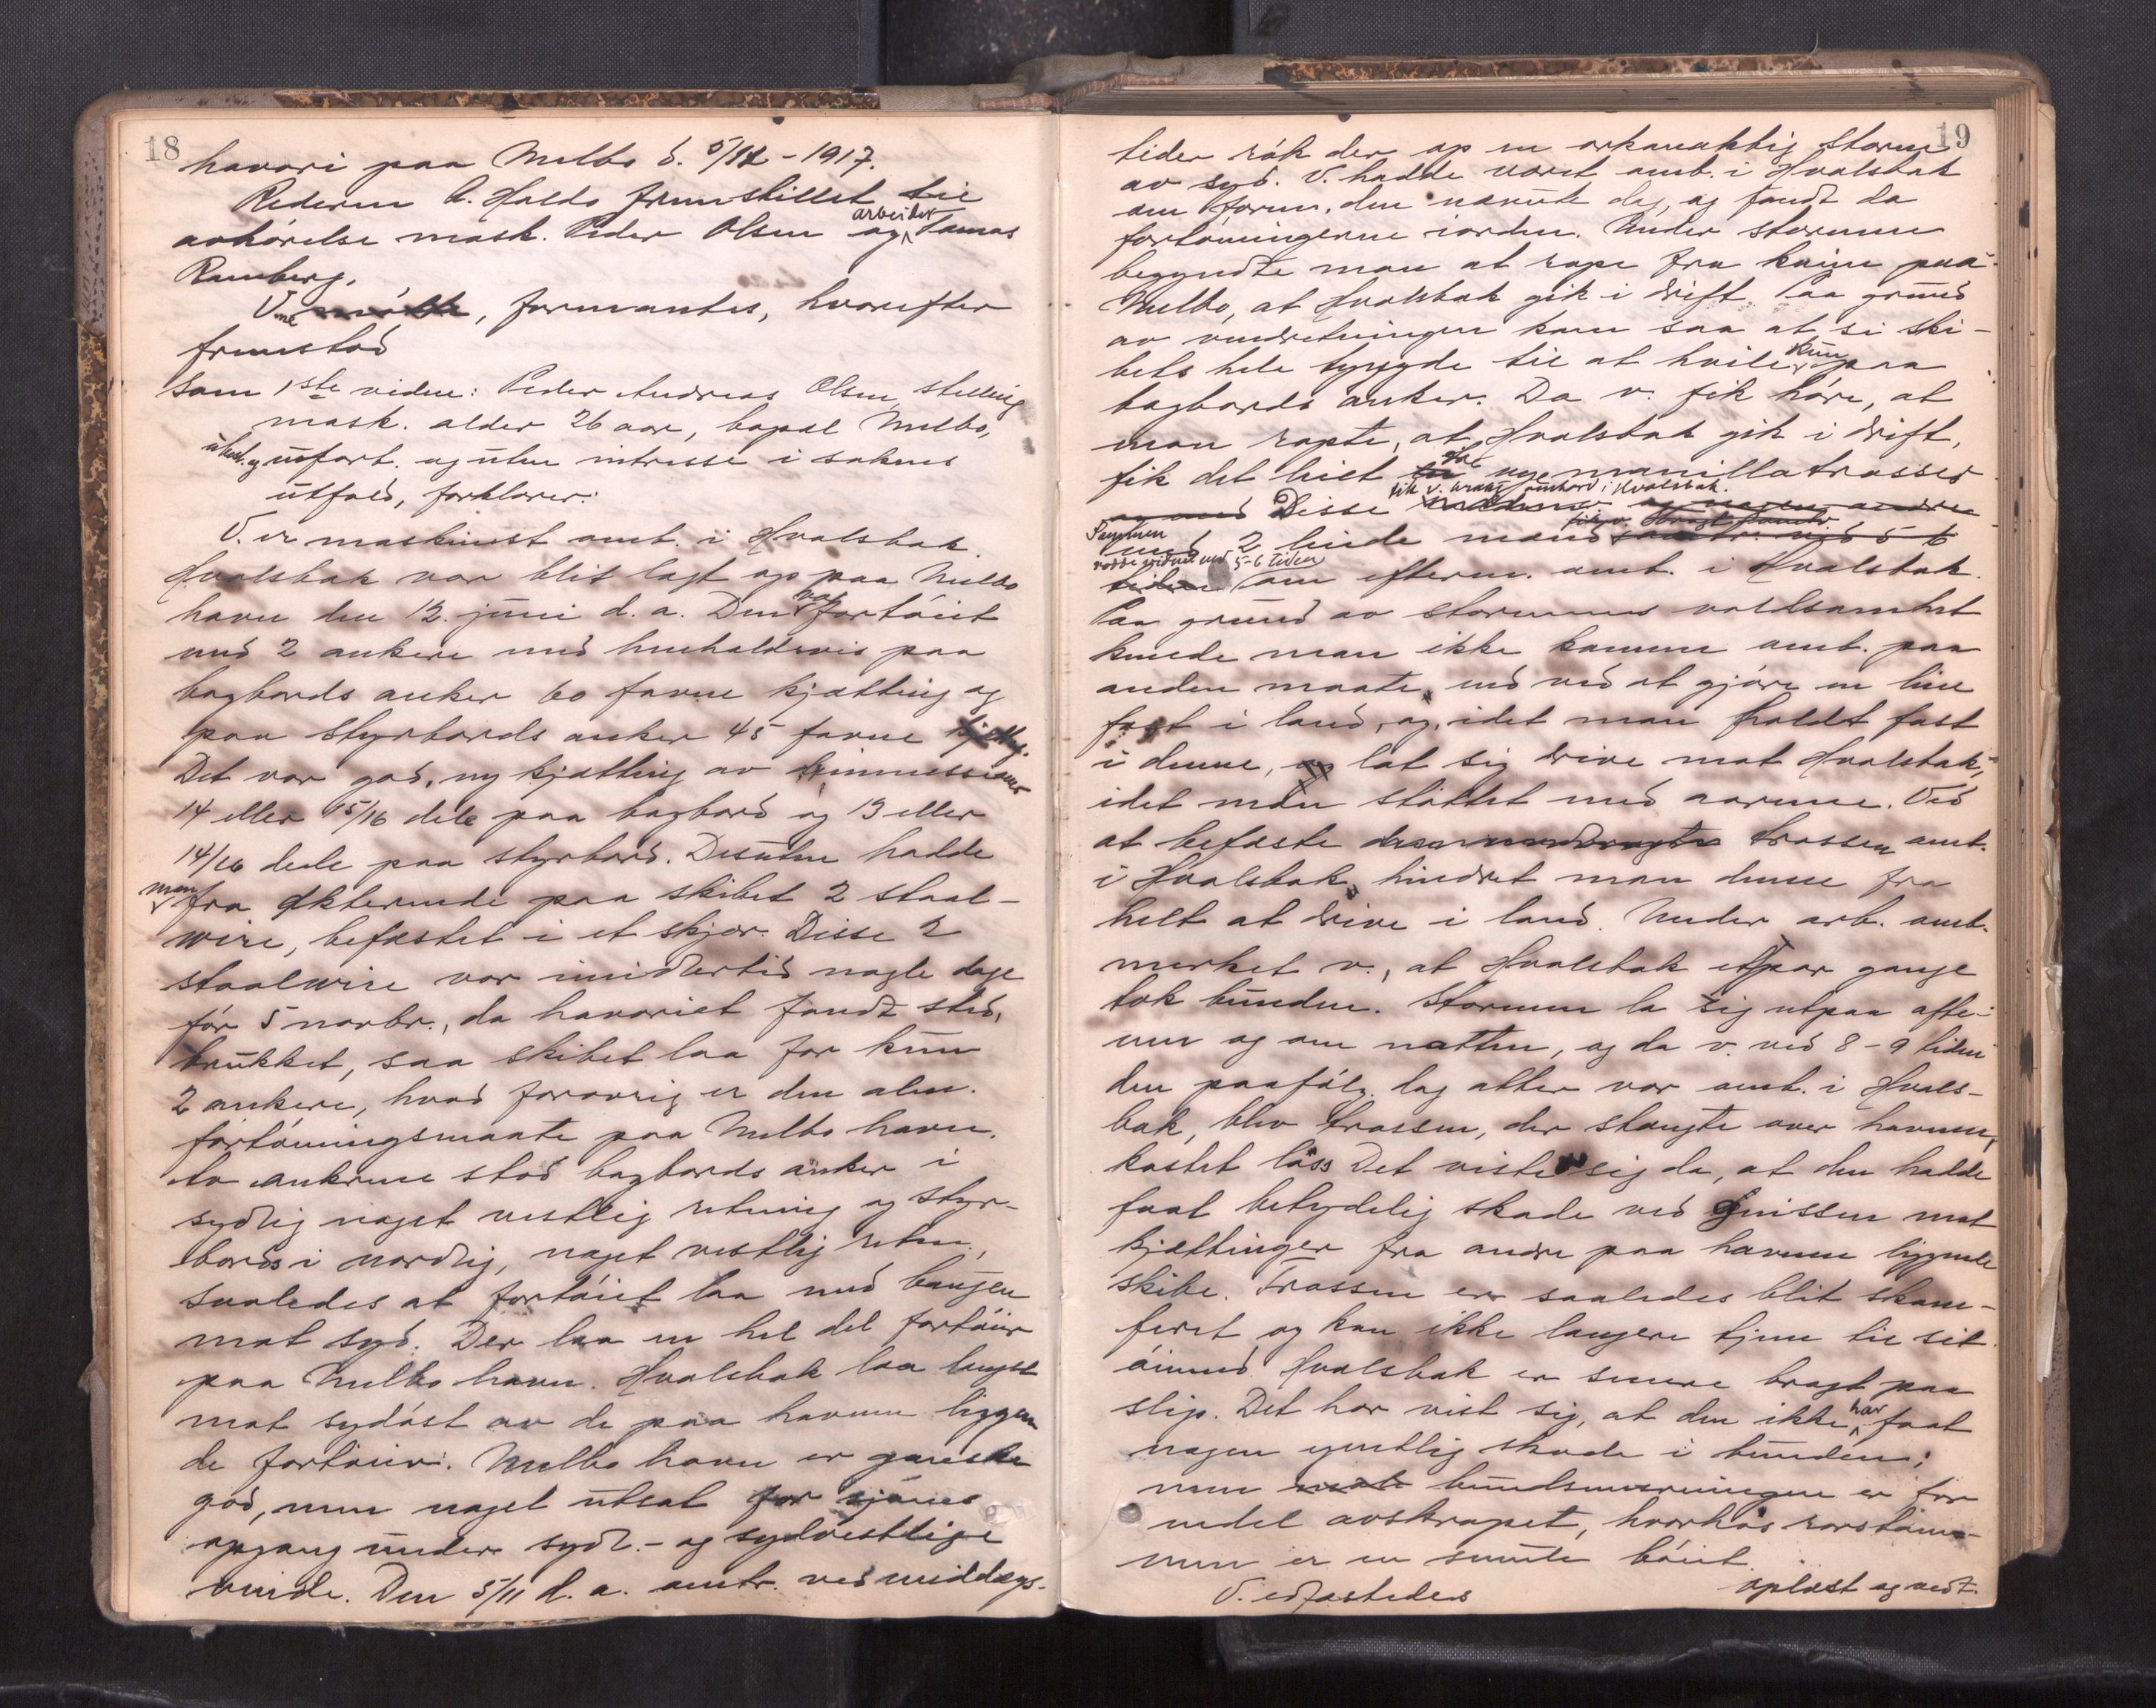 18
havari paa Melbo d. 5/11 - 1917.
Rederen C. Holds fremstillet til
avhørelse mask. Peder Olsen og arbeider Tomas
Ramberg.
V.ne møtte, formantes, hvorefter
fremstod
Som 1ste vidne: Peder Andreas Olsen, stilling
mask. alder 26 aar, bopæl Melbo,
ubesl. og usvort. og uten intresse i sakens
utfald, forklarer:
V. er maskinist omb. i Hvalsbak.
Hvalsbak var blit lagt op paa Melbo
havn den 12. juni d. a. Den var fortøiet
med 2 ankere med henholdsvis paa
bagbords anker 60 favne kjætting og
paa styrbords anker 45 favne kjætting.
Det var god, ny kjætting av dimensioner
14 eller 15/16 dele paa bagbord og 13 eller
14/16 dele paa styrbord. Desuten hadde
man fra akterende paa skibet 2 staal-
wire, befæstet i et skjær. Disse 2
staalwire var imidlertid nogle dage
før 5 novbr., da havariet fandt sted,
brukket, saa skibet laa for kun
2 ankere, hvad forøvrig er den alm.
fortøiningsmaate paa Melbo havn.
Av ankrene stod bagbords anker i
sydlig noget vestlig retning og styr-
bords i nordlig, noget vestlig retn.,
saaledes at fortøiet laa med baugen
mot syd. Der laa en hel del fartøier
paa Melbo havn. Hvalsbak laa længst
mot sydøst av de paa havnen liggen
de fartøier. Melbo havn er ganske
god, men noget utsat for sjøens
opgang under sydl.- og sydvestlige
vinde. Den 5/11 d. a. omtr. ved middags-
19
tider røk der op en orkanaktig storm
av syd. V. hadde været omb. i Hvalsbak
om form. den nævnte dag, og fandt da
fortøiningerne iorden. Under stormen
begyndte man at rope fra kaien paa
Melbo, at Hvalsbak gik i drift. Paa grund
av vindretningen kom saa at si ski-
bets hele tyngde til at hvile kun paa
bagbords anker. Da v. fik høre, at
man ropte, at Hvalsbak gik i drift,
fik det leiet fat nye manillatrosser
og med Disse fik v. bragt ombord i Hvalsbak.
Sammen med 2 leiede mænd
rodde vidnet ved 5-6 tiden om efterm. omb. i Hvalsbak.
Paa grund av stormens voldsomhet
kunde man ikke komme omb. paa
anden maate, end ved at gjøre en line
fast i land, og, idet man holdt fast
i denne, lot sig drive mot Hvalsbak,
idet man støttet med aarene. Ved
at befæste trossen omb.
i Hvalsbak, hindret man denne fra
helt at drive i land. Under arb. omb.
merket v., at Hvalsbak et par gange
tok bunden. Stormen la sig utpaa afte-
nen og om natten, og da v. ved 8-9 tiden
den paafølg. dag atter var omb. i Hvals-
bak, blev trossen, der stængte over havnen,
kastet løss. Det viste sig da, at den hadde
faat betydelig skade ved gnissen mot
kjættinger fra andre paa havnen liggende
skibe. Trossen er saaledes blit skam-
feret og kan ikke længere tjene til sit
øiemed. Hvalsbak er senere bragt paa
slip. Det har vist sig, at den ikke har faat
nogen egentlig skade i bunden;
men bundsmørningen er for
endel avskrapet, hvorhos rorstam-
men er en smule bøiet.
V. edfæstedes
oplæst og vedt.